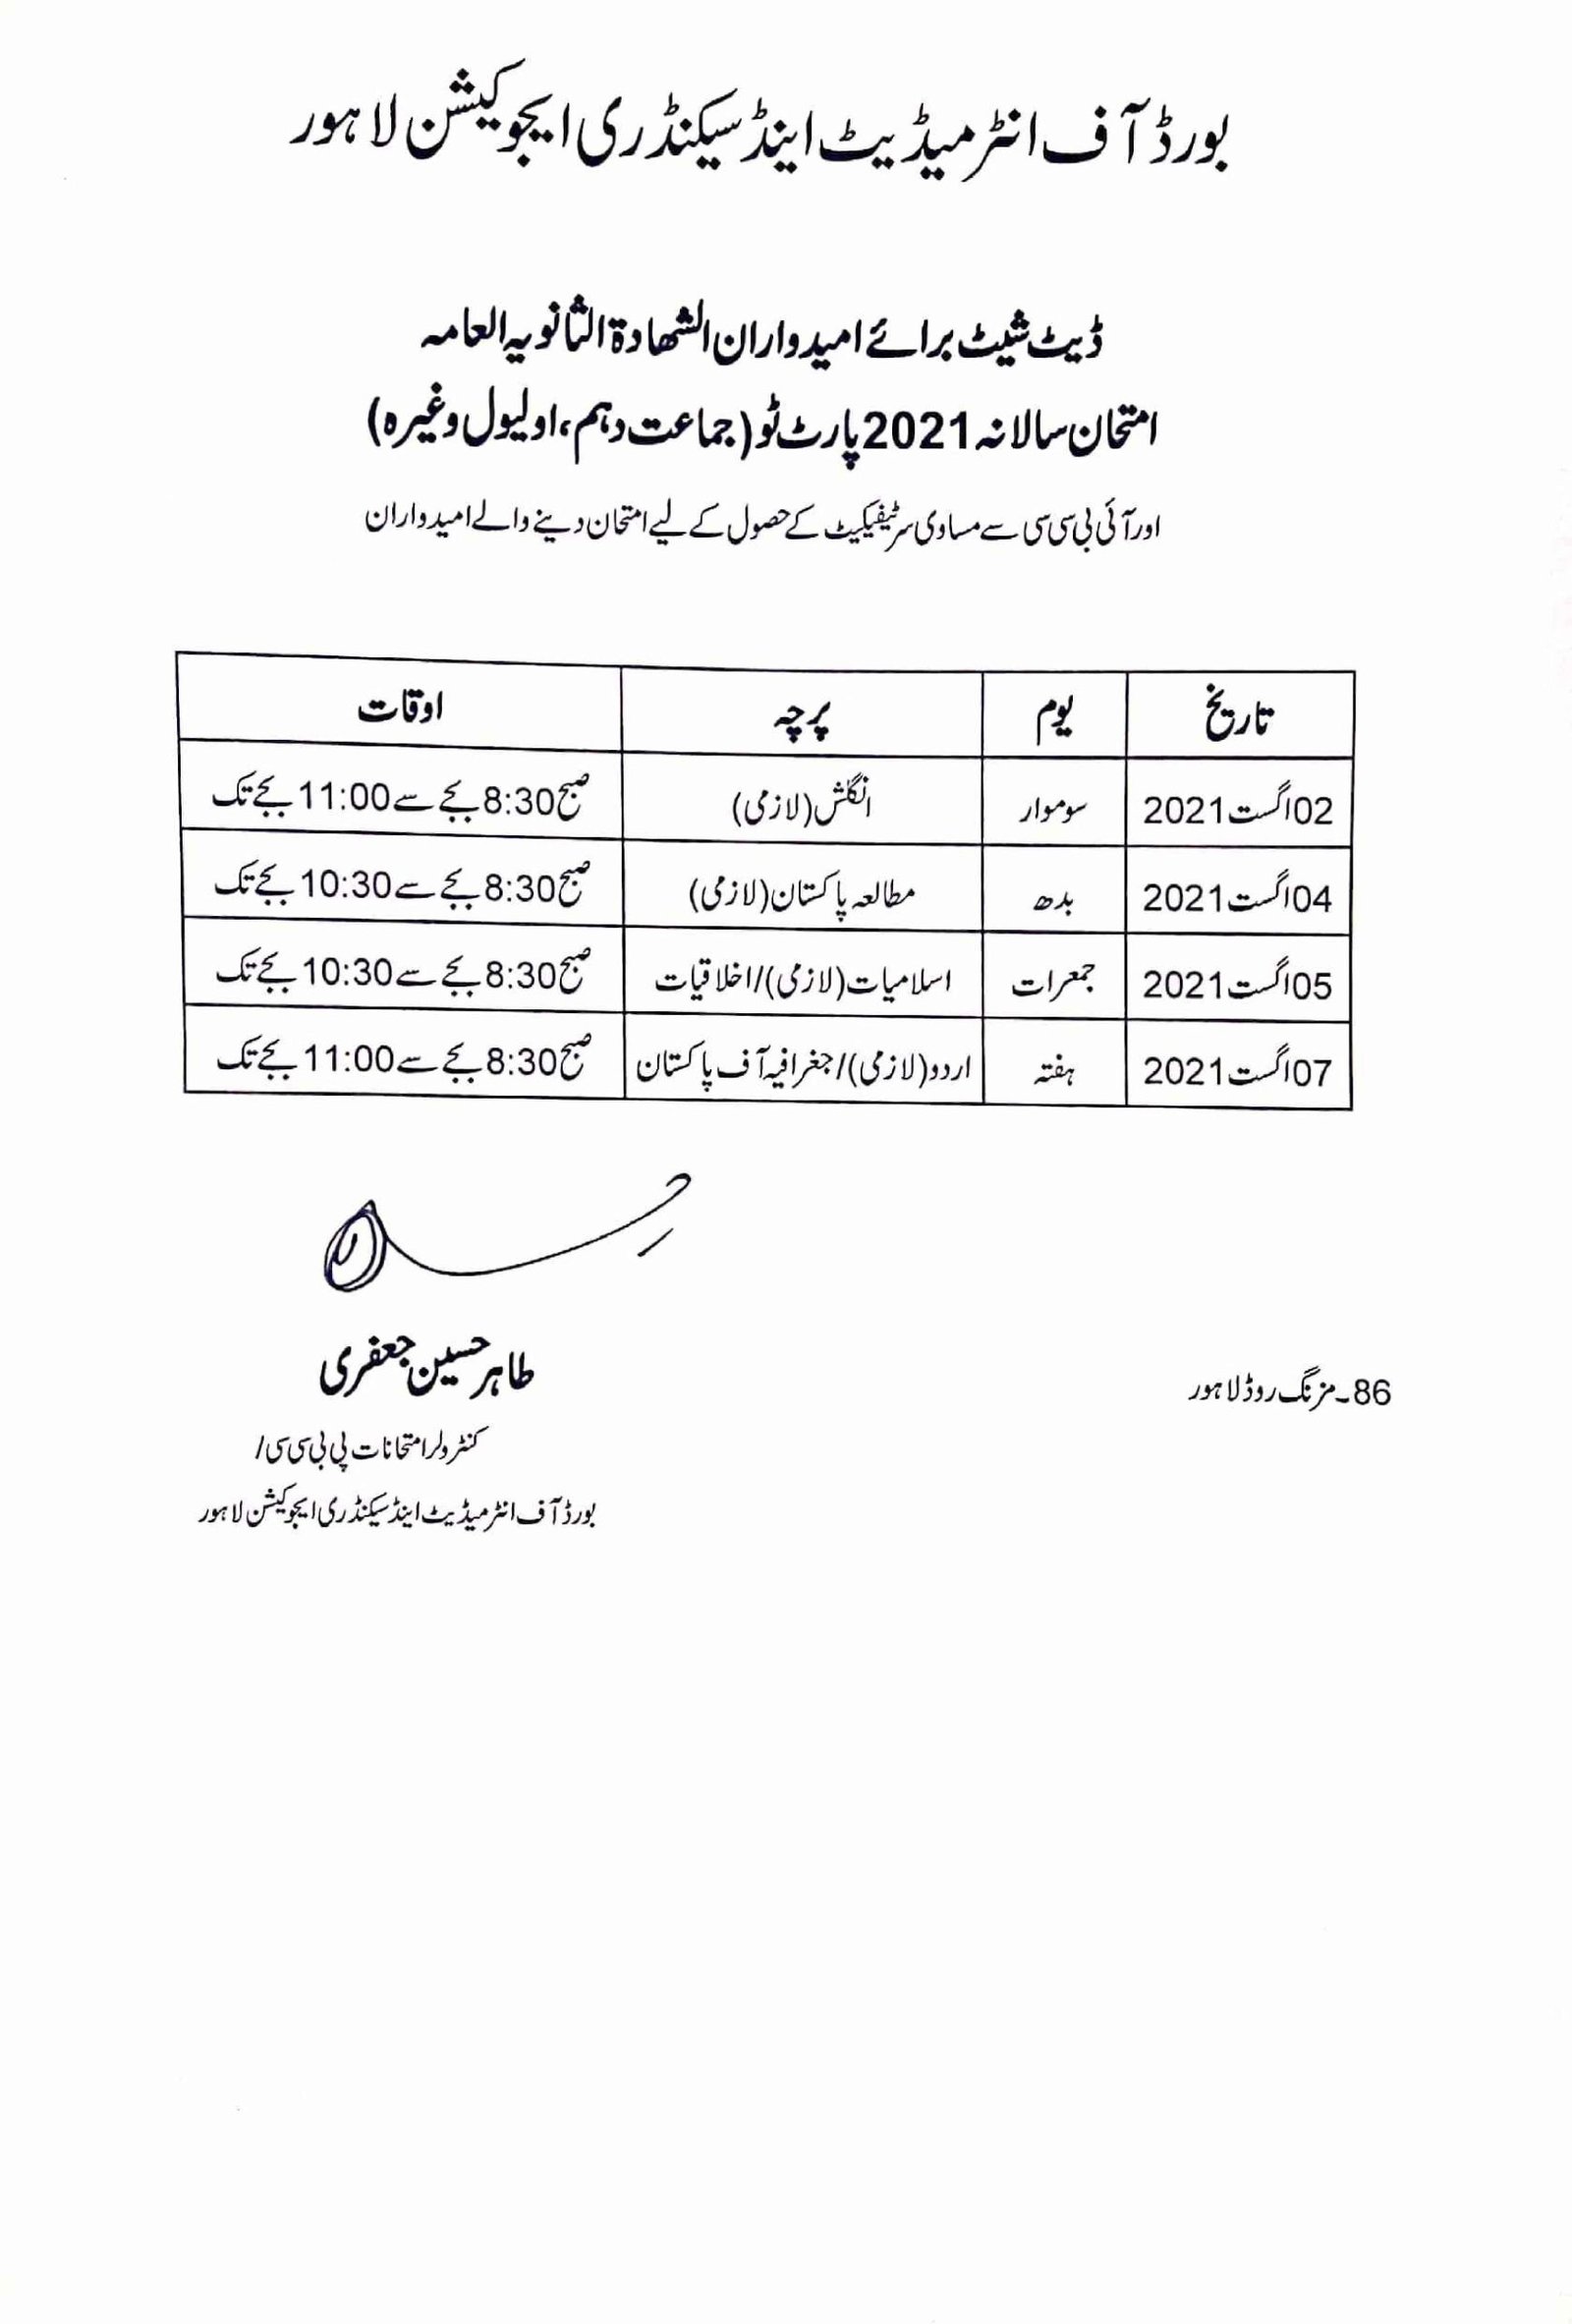 بورڈ آف انٹرمیڈیٹ اینڈ سیکنڈری ایجوکیشن لاہور
ڈیٹ شیٹ برائے امیدواران الشھادۃ الثانویہ العامہ
امتحان سالانہ 2021 پارٹ ٹو (جماعت دہم، اولیول وغیرہ)
اور آئی بی سی سی سے مساوی سرٹیفیکیٹ کے حصول کے لیے امتحان دینے والے امیدواران
تاریخ یوم پرچہ اوقات
02 اگست 2021 سوموار انگلش (لازمی) صبح 8:30 بجے سے 11:00 بجے تک
04 اگست 2021 بدھ مطالعہ پاکستان (لازمی) صبح 8:30 بجے سے 10:30 بجے تک
05 اگست 2021 جمعرات اسلامیات (لازمی)/اخلاقیات صبح 8:30 بجے سے 10:30 بجے تک
07 اگست 2021 ہفتہ اردو (لازمی)/جغرافیہ آف پاکستان صبح 8:30 بجے سے 11:00 بجے تک
طاہر حسین جعفری
86۔مزنگ روڈ لاہور
کنٹرولر امتحانات پی بی سی سی/
بورڈ آف انٹرمیڈیٹ اینڈ سیکنڈری ایجوکیشن لاہور